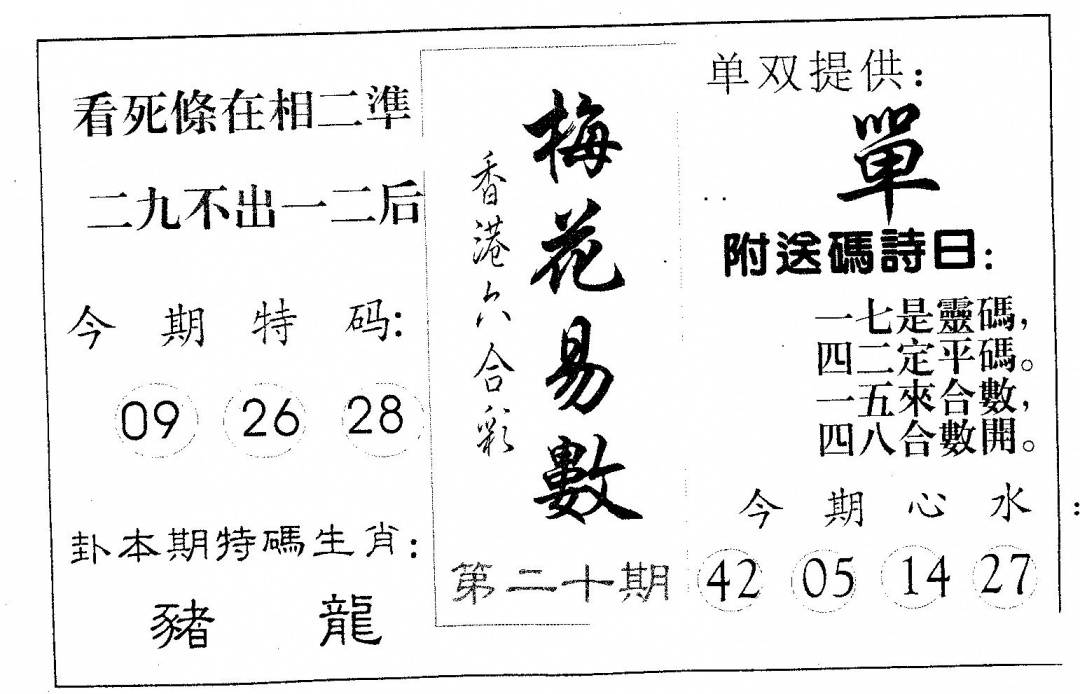 看死條在相二準
二九不出一二后
今期特码:
09 26 28
卦本期特碼生肖:
豬 龍
梅花易數
香港六合彩
第二十期
单双提供:
單
附送碼詩日:
一七是靈碼,
四二定平碼。
一五來合數,
四八合數開。
今期心水:
42 05 14 27